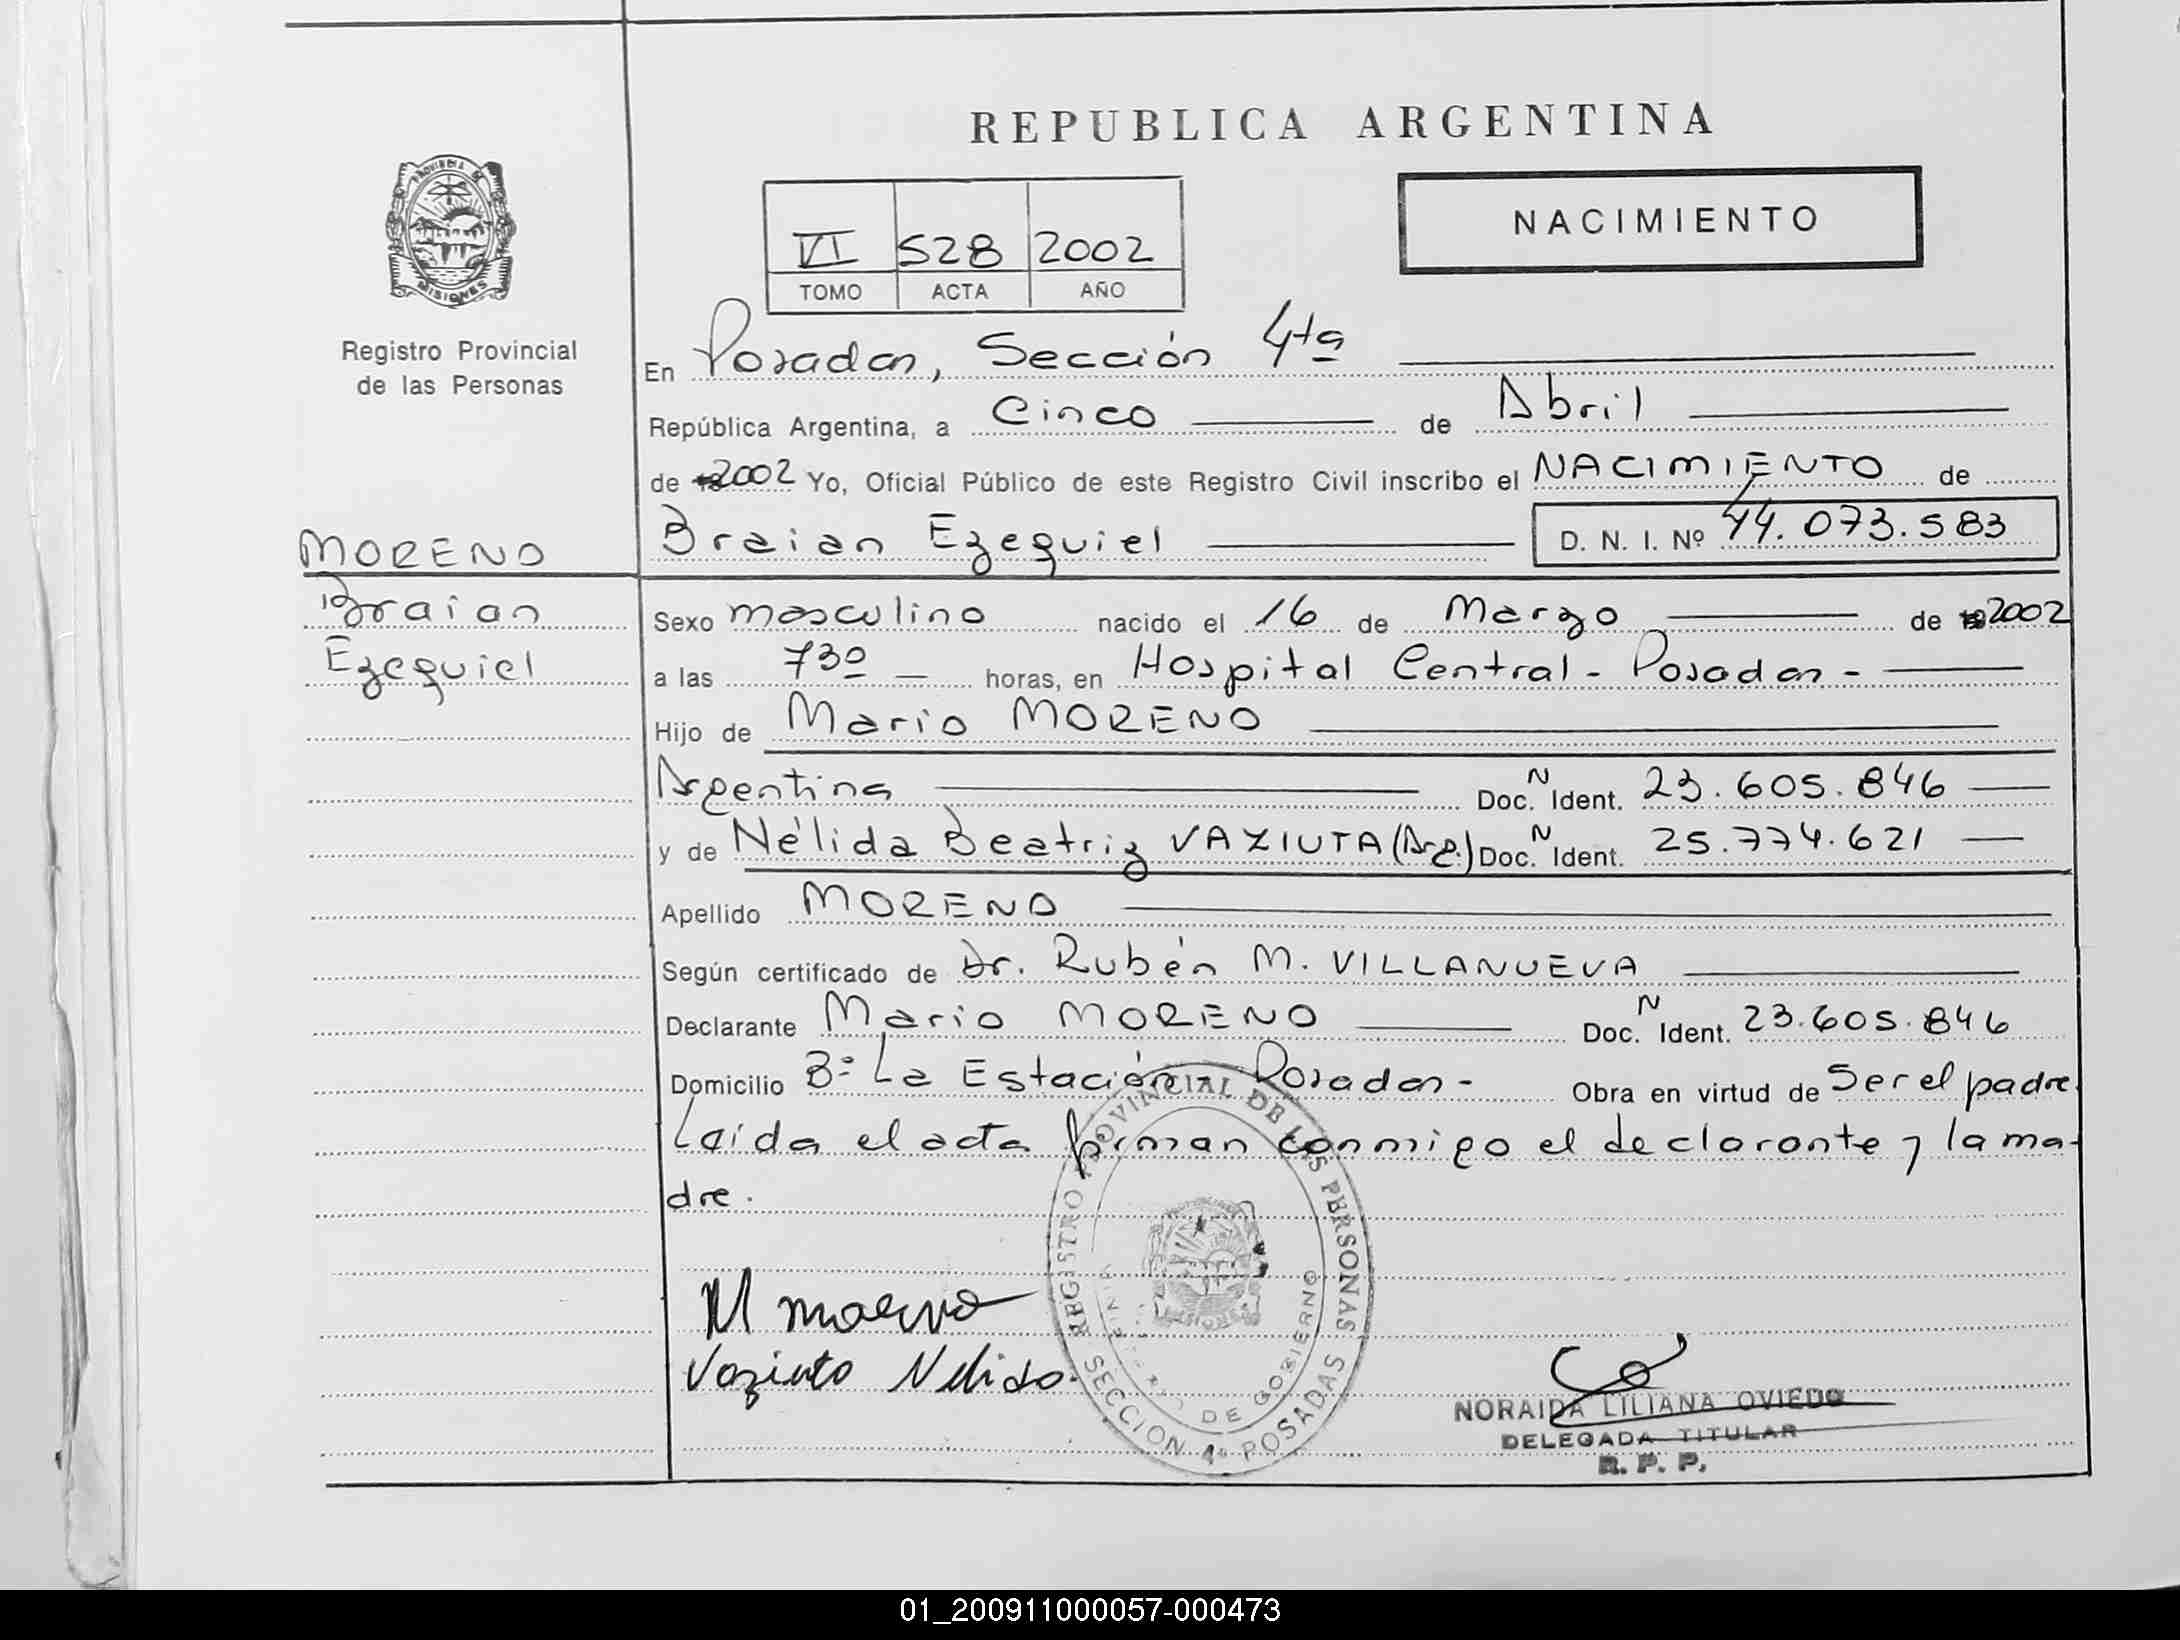 REPUBLICA ARGENTINA
NACIMIENTO
VI 528 2002
TOMO ACTA AÑO
PROVINCIA DE
MISIONES
Registro Provincial
de las Personas
En Posadas, Sección 4ta
República Argentina, a Cinco de Abril
de 2002 Yo, Oficial Público de este Registro Civil inscribo el NACIMIENTO de
Braian Ezequiel D. N. I. Nº 44.073.583
MORENO
Braian
Ezequiel
Sexo masculino nacido el 16 de Marzo de 2002
a las 7³⁰ horas, en Hospital Central - Posadas -
Hijo de Mario MORENO
Argentina Doc. N Ident. 23.605.846
y de Nélida Beatriz VAZIUTA (Arg.) Doc. N Ident. 25.774.621
Apellido MORENO
Según certificado de Dr. Rubén M. VILLANUEVA
Declarante Mario MORENO Doc. N Ident. 23.605.846
Domicilio Bº La Estación - Posadas - Obra en virtud de Ser el padre.
Leída el acta firman conmigo el declarante y la ma-
dre.
REGISTRO PROVINCIAL DE LAS PERSONAS
MINISTERIO DE GOBIERNO
SECCION 4º POSADAS
M Moreno
Vaziuta Nelida.
NORAIDA LILIANA OVIEDO
DELEGADA TITULAR
R. P. P.
01_200911000057-000473